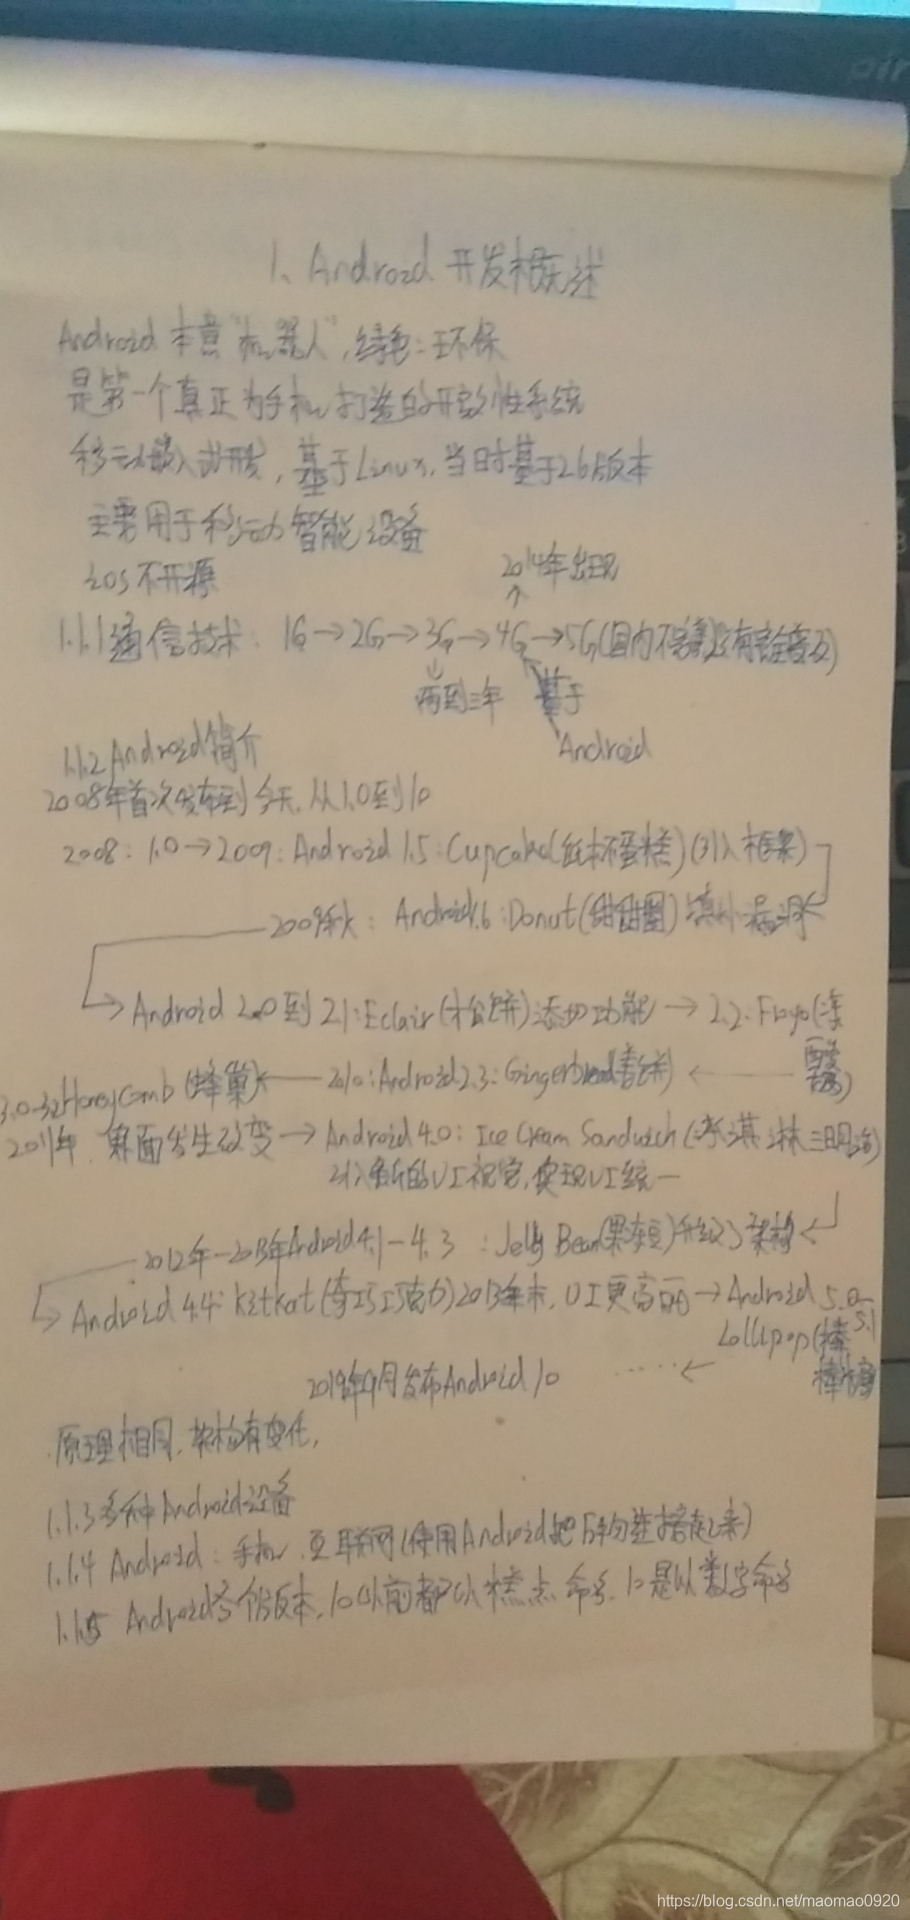 1、Android 开发概述
Android 本意"机器人",绿色:环保
是第一个真正为手机打造的开放性系统
移动嵌入式开发,基于Linux,当时基于2.6版本
主要用于移动智能设备
iOS不开源
2014年出现
1.1.1通信技术: 1G→2G→3G→4G→5G(国内不完善,没有完全普及)
两到三年 基于
Android
1.1.2 Android简介
2008年首次发布到今天,从1.0到10
2008:1.0→2009:Android 1.5:Cupcake(纸杯蛋糕)(引入框架)
2009秋:Android1.6:Donut(甜甜圈)填补漏洞
Android 2.0到2.1:Eclair(松饼)添加功能→2.2:Froyo(冻
酸
3.0-3.2Honeycomb(蜂巢)←2010:Android2.3:Gingerbread(姜饼)←
2011年,界面发生改变→Android 4.0:Ice Cream Sandwich(冰淇淋三明治)
引入全新的UI视觉,实现UI统一
2012年-2013年Android4.1-4.3:Jelly Bean(果冻豆)升级了架构
Android 4.4:KitKat(奇巧巧克力)2013年末,UI更高 →Android 5.0-
5.1
Lollipop(棒
棒糖
2019年9月发布Android 10 ……←
原理相同,架构有变化,
1.1.3多种Android设备
1.1.4 Android:手机、互联网(使用Android把 连接起来)
1.1.5 Android各个版本,10以前都以糕点命名,10是以数字命名
https://blog.csdn.net/maomao0920